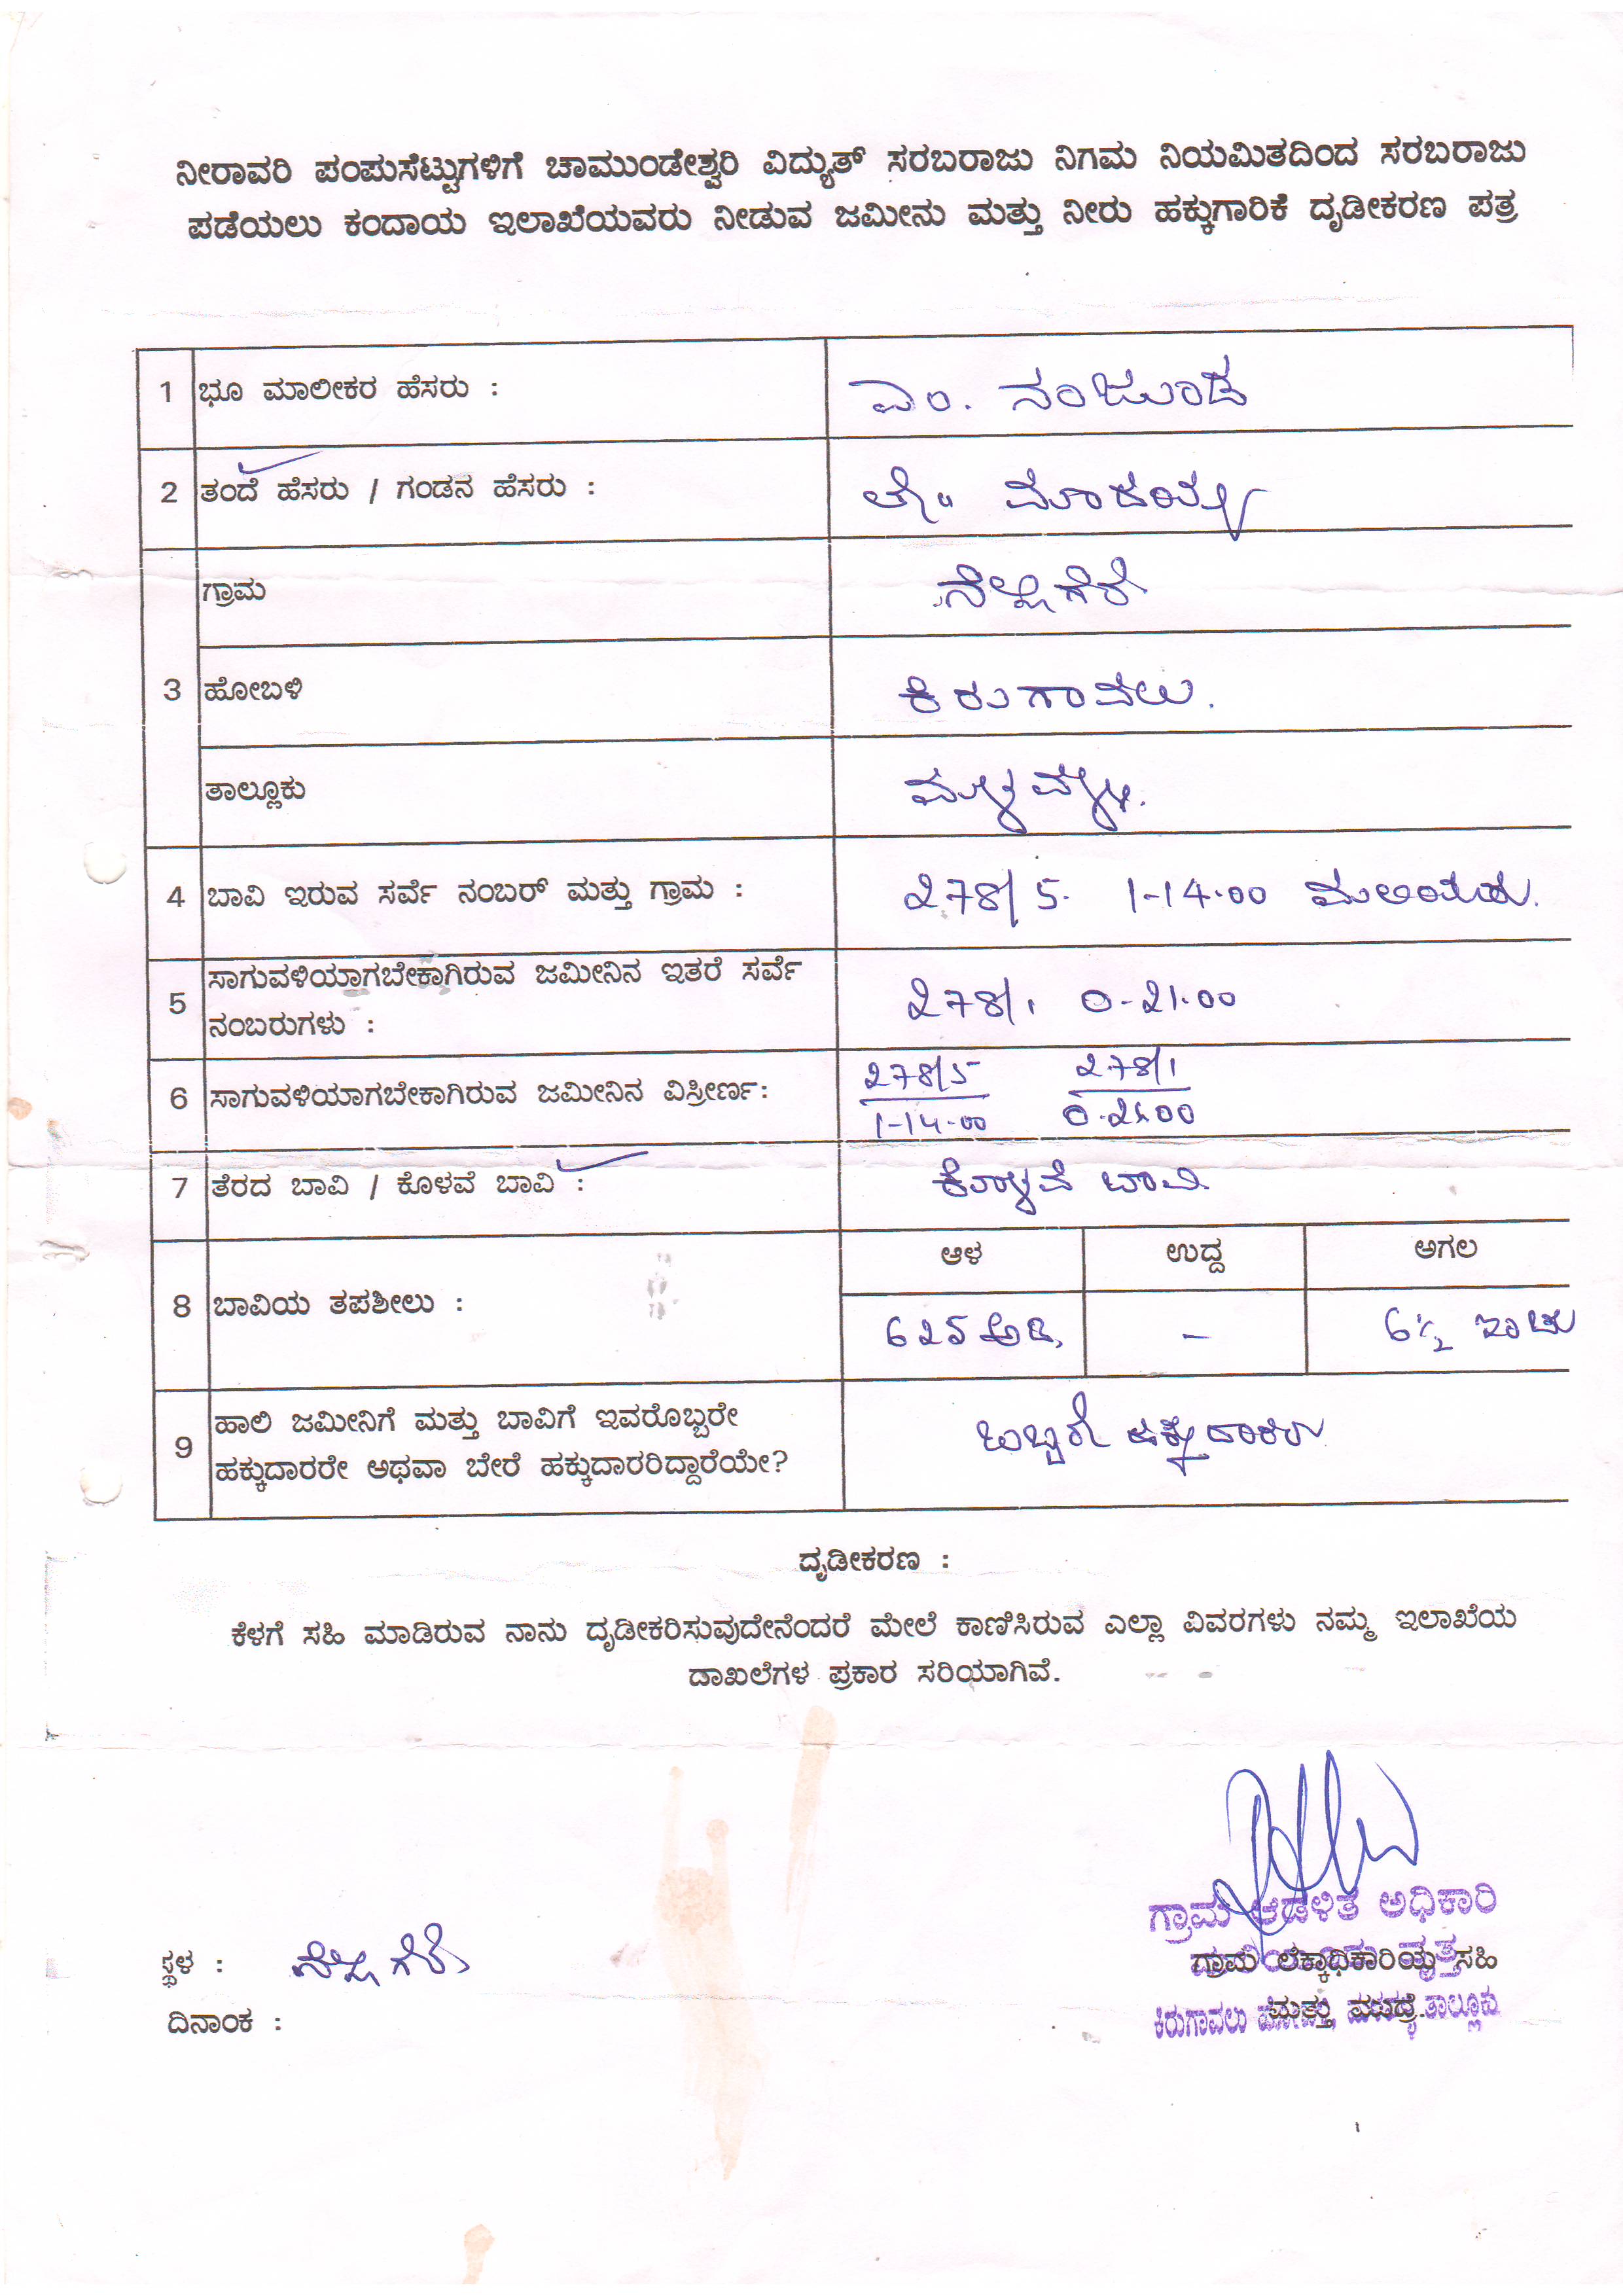 ನೀರಾವರಿ ಪಂಪುಸೆಟ್ಟುಗಳಿಗೆ ಚಾಮುಂಡೇಶ್ವರಿ ವಿದ್ಯುತ್ ಸರಬರಾಜು ನಿಗಮ ನಿಯಮಿತದಿಂದ ಸರಬರಾಜು
ಪಡೆಯಲು ಕಂದಾಯ ಇಲಾಖೆಯವರು ನೀಡುವ ಜಮೀನು ಮತ್ತು ನೀರು ಹಕ್ಕುಗಾರಿಕೆ ದೃಡೀಕರಣ ಪತ್ರ
1 ಭೂ ಮಾಲೀಕರ ಹೆಸರು : ಎಂ. ನಂಜುಂಡ
2 ತಂದೆ ಹೆಸರು / ಗಂಡನ ಹೆಸರು :
3 ಗ್ರಾಮ ನೆಲ್ಲಿಗೆರೆ
ಹೋಬಳಿ ಕಿರುಗಾವಲು.
ತಾಲ್ಲೂಕು ಮಳ್ಳವಳ್ಳಿ.
4 ಬಾವಿ ಇರುವ ಸರ್ವೆ ನಂಬರ್ ಮತ್ತು ಗ್ರಾಮ : 278/5. 1-14.00
5 ಸಾಗುವಳಿಯಾಗಬೇಕಾಗಿರುವ ಜಮೀನಿನ ಇತರೆ ಸರ್ವೆ
ನಂಬರುಗಳು : 278/1 0-21.00
6 ಸಾಗುವಳಿಯಾಗಬೇಕಾಗಿರುವ ಜಮೀನಿನ ವಿಸ್ತೀರ್ಣ: 278/5 278/1
1-14.00 0.21.00
7 ತೆರದ ಬಾವಿ / ಕೊಳವೆ ಬಾವಿ : ಕೊಳವೆ ಬಾವಿ
ಆಳ ಉದ್ದ ಅಗಲ
8 ಬಾವಿಯ ತಪಶೀಲು : 625 ಅಡಿ, – 6½ ಇಂಚು
9 ಹಾಲಿ ಜಮೀನಿಗೆ ಮತ್ತು ಬಾವಿಗೆ ಇವರೊಬ್ಬರೇ
ಹಕ್ಕುದಾರರೇ ಅಥವಾ ಬೇರೆ ಹಕ್ಕುದಾರರಿದ್ದಾರೆಯೇ? ಒಬ್ಬರೇ ಹಕ್ಕುದಾರರು
ದೃಡೀಕರಣ :
ಕೆಳಗೆ ಸಹಿ ಮಾಡಿರುವ ನಾನು ದೃಡೀಕರಿಸುವುದೇನೆಂದರೆ ಮೇಲೆ ಕಾಣಿಸಿರುವ ಎಲ್ಲಾ ವಿವರಗಳು ನಮ್ಮ ಇಲಾಖೆಯ
ದಾಖಲೆಗಳ ಪ್ರಕಾರ ಸರಿಯಾಗಿವೆ.
ಗ್ರಾಮ ಆಡಳಿತ ಅಧಿಕಾರಿ
ಸ್ಥಳ : ನೆಲ್ಲಿಗೆರೆ
ಗ್ರಾಮ ಲೆಕ್ಕಾಧಿಕಾರಿಯ ಸಹಿ
ವೃತ್ತ
ಮತ್ತು ಮುದ್ರೆ.
ಕಿರುಗಾವಲು ತಾಲ್ಲೂಕು
ದಿನಾಂಕ :